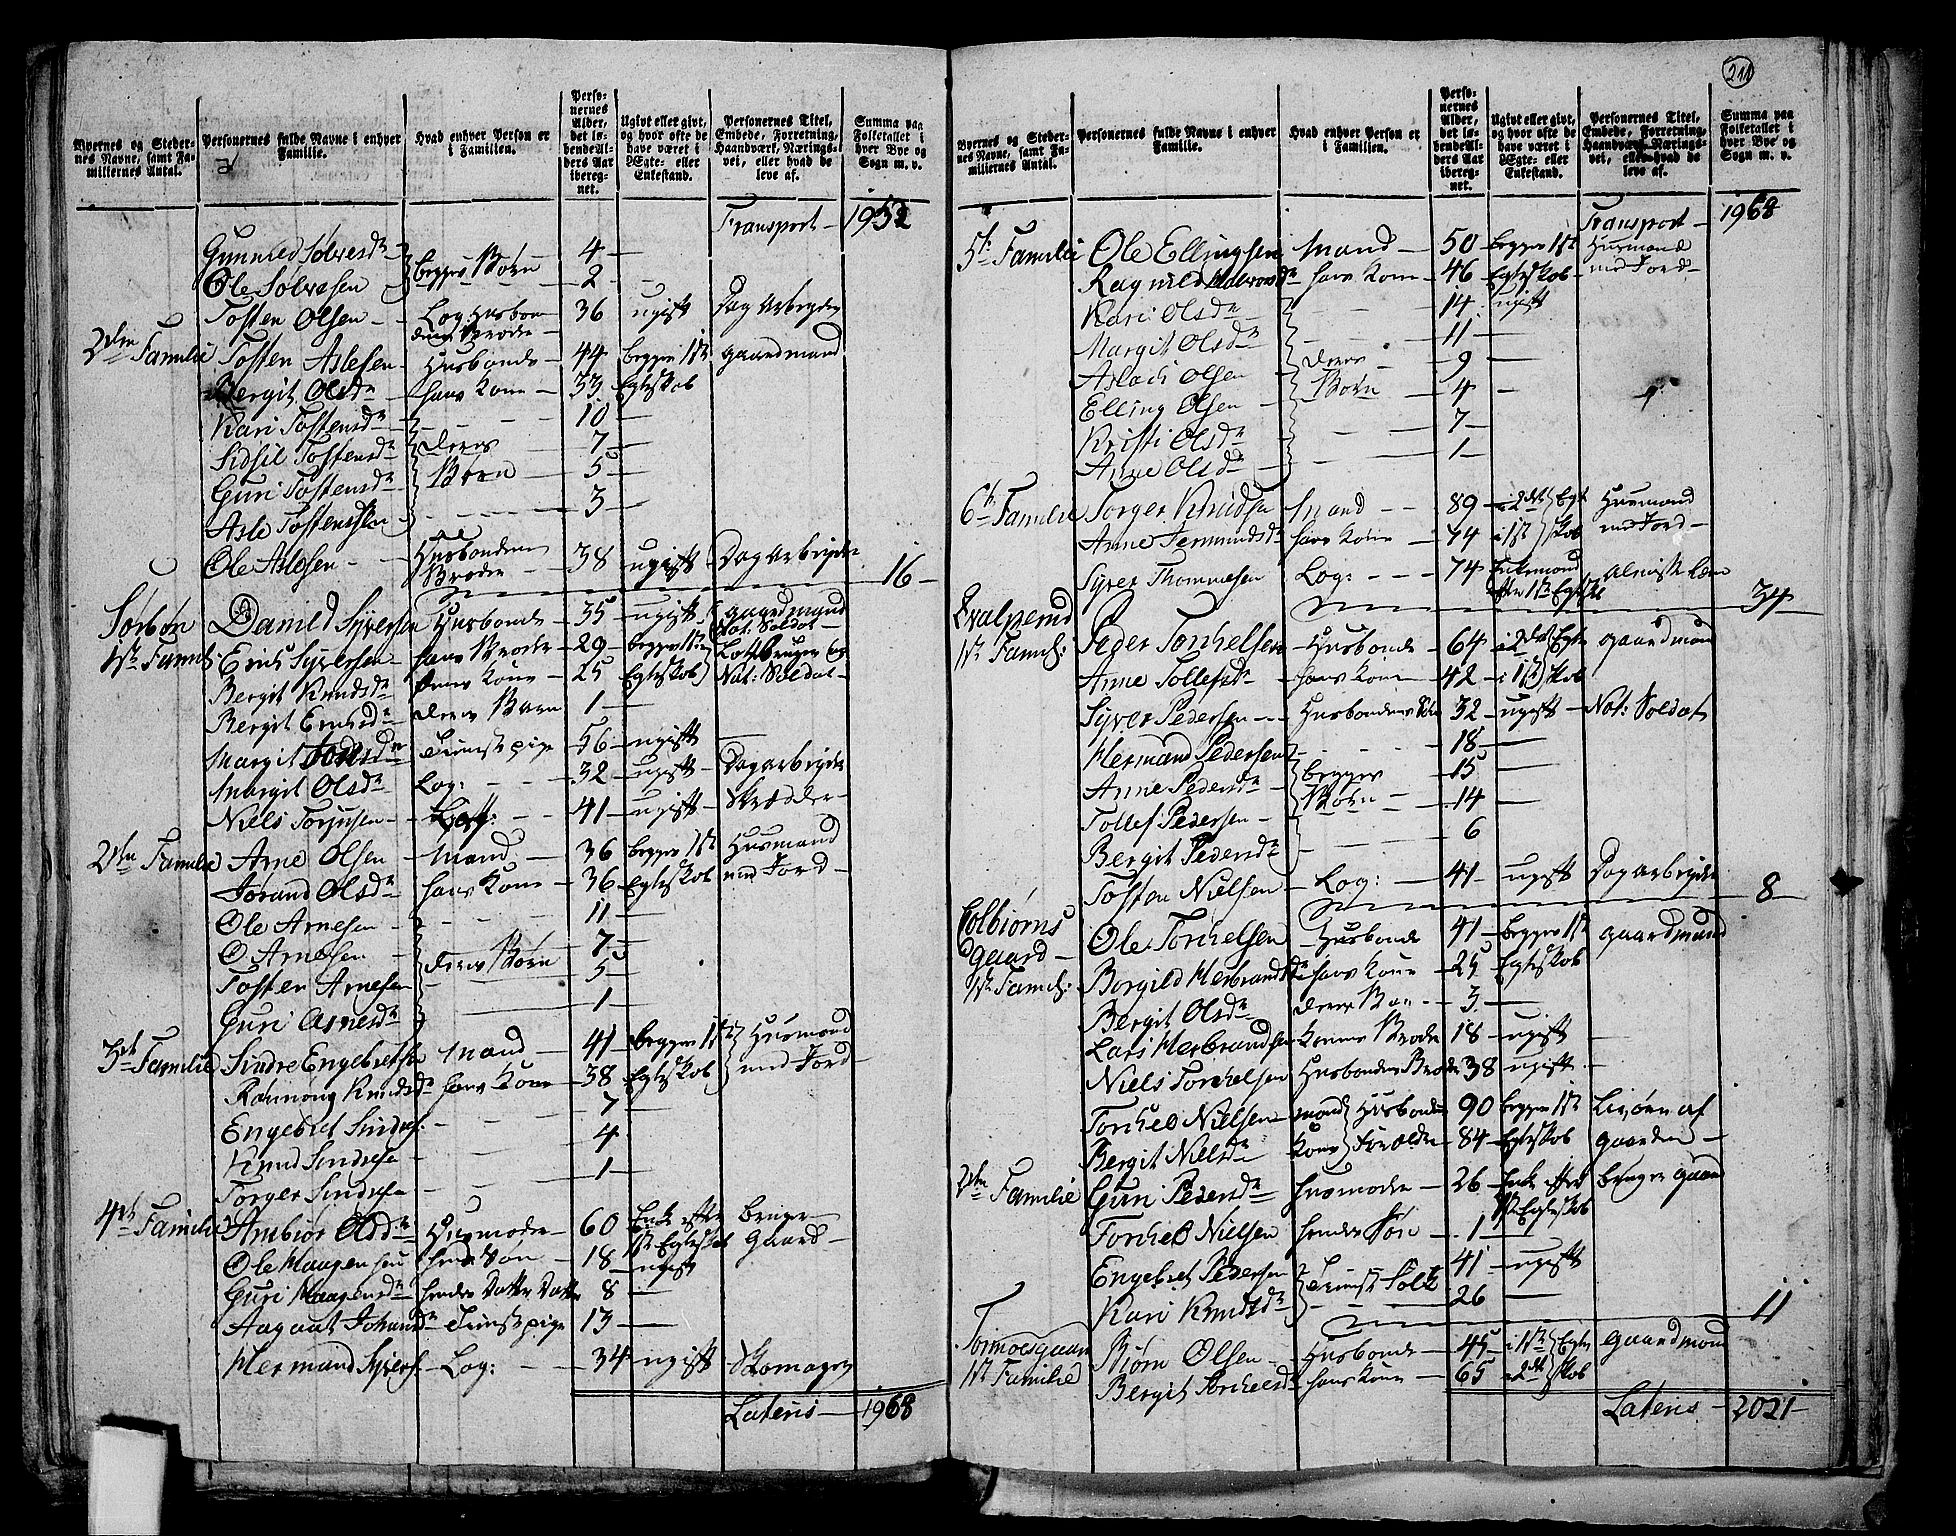 211
Byernes og Stedernes Navne, samt Familiernes Antal. | Personernes fulde Navne i enhver Familie. | Hvad enhver Person er i Familien. | Personernes Alder, det løbendeAlders Aar iberegnet. | Ugivt eller givt, og hvor ofte de have været i Ægte- eller Enkestand. | Personernes Titel, Embede, Forretning, Haandværk, Næringsvei, eller hvad de leve af. | Summa paa Folketallet i hver Bye og Sogn m. v.
Transport – 1952
Gunnild Solvesdr 4 –
begges Børn
Ole Solvesen 2 –
Tosten Olsen – Log Husbon dens Broder 36 ugift Dag Arbeyder
2den Familie Tosten Aslesen Husbonde 44 begges 1ste gaardmand
Bergit Olsdr hans Kone 33 Egteskab
Kari Tostensdr 10 –
Sidsil Tostensdr deres 7 –
Guri Tostensdr Børn 5 –
Asle Tostensen 3 –
Ole Aslesen – Husbondens Broder 38 ugift Dag Arbeyder
16 –
Sørbøn Daniel Syversen Husbonde 35 ugift gaardmand Nat: Soldat
1ste Famil: Erich Syversen hans Broder 29 begges 1ste
Bergit Knudsdr dennes Kone 25 Egteskab Nat: Soldat
Bergit Erichsdr deres Barn 1 –
Margit dr Tieneste pige 56 ugift –
Margit Olsdr Log: 32 ugift Dagarbeyder
Niels Torjusen 41 ugift Skrædder
2den Familie Arne Olsen Mand 36 begges 1ste Husmand
Jorand Olsdr hans Kone 36 Egteskab med Jord –
Ole Arnesen 11 –
O Arnesen deres Børn 7 –
Tosten Arnesen 5 –
Guri Arnesdr 1 –
3de Familie Sindre Engebretsen Mand 41 begges 1ste Husmand
Rannong Knudsdr hans Kone 38 Egteskab med Jord
Engebret Sindres: 7 –
Knud Sindresen 4
Torger Sindresen 1 –
4de Familie Ambiør Olsdr Husmoder 60 Enke efter 1ste Egteskab bruger Gaard –
Ole Haagensen hendes Søn 18 ugift
Guri Haagensdr hendes Datter Datter 8 –
Aagaat Johansdr Tieneste pige 13 –
Hermand Syvers: Log: 34 ugift Skomager
Lateris – 1968
Byernes og Stedernes Navne, samt Familiernes Antal. | Personernes fulde Navne i enhver Familie. | Hvad enhver Person er i Familien. | Personernes Alder, det løbendeAlders Aar iberegnet. | Ugivt eller givt, og hvor ofte de have været i Ægte- eller Enkestand. | Personernes Titel, Embede, Forretning, Haandværk, Næringsvei, eller hvad de leve af. | Summa paa Folketallet i hver Bye og Sogn m. v.
Transport – 1968
5te Familie Ole Ellingsen Mand 50 begges 1ste Husmand
Ragnild Halvorsdr hans Kone 46 Egteskab med Jord –
Kari Olsdr 14 ugift
Margit Olsdr 11 –
Aslach Olsen deres 9 –
Elling Olsen Børn 4 –
Kristi Olsdr 7 –
Anne Olsdr 1 –
6te Familie Torger Knudsen Mand 89 i 2det Egte Husmand
Anne Jermundsdr hans Kone 74 i 1ste skab med Jord –
Syver Thommesen Log: 74 Enkemand efter 1ste Egtesk: Almisse Lem
34
Qvalpemd Peder Torchelsen Husbonde 64 i 2det Egte gaardmand
1ste Famil: Anne Tollefsdr hans Kone 42 i 1ste skab
Syver Pedersen Husbondens Søn 32 ugift Nat: Soldat
Hermand Pedersen 18 –
Anne Pedersdr begges 15 –
Tollef Pedersen Børn 14 –
Bergit Pedersdr 6
Tosten Nielsen Log: 41 ugift Dag arbeyder
8 –
Colbiørns Ole Torchelsen Husbonde 41 begges 1ste gaardmand
gaard – Borgild Herbrandsdr hans Kone 25 Egteskab
1ste Famil: Bergit Olsdr deres Barn 3 –
Lars Herbrandsen Konens Broder 18 ugift –
Niels Torchelsen Husbondens Broder 38 ugift –
Torchel Nielsen Mand Husbondens 90 begges 1ste af
Bergit Nielsdr Kone Forældre 84 Egteskab gaarden –
2den Familie Guri Pedersdr Husmoder 26 Enke efter 1ste Egteskab bruger gaard
Torchel Nielsen hendes Søn 1
Engebret Pedersen Tieneste Folk 41 ugift
Kari Knudsdr 26 –
11
Tormodsgaard Biørn Olsen Husbonde 45 i 1ste Egte gaardmand
1ste Familie Bergit Torchelsdr hans Kone 65 i 2det skab
Lateris – 2021 –